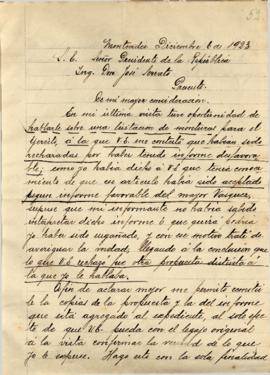 Montevideo Diciembre 6 de 1923
S. E. Señor Presidente de la República
Ing. Don José Serrato
Presente.
De mi mayor consideración.
En mi última visita tuve oportunidad de
hablarle sobre una licitación de monturas para el
Ejército, á la que V.E. me contestó que habían sido
rechazadas por haber tenido informe desfavora-
ble; como yo había dicho á V.E. que tenía conoci-
miento de que ese artículo había sido aceptado
según informe favorable del mayor Vazquez,
supuse que mi informante no habría sabido
interpretar dicho informe ó que quizá estaría
yo haber sido engañado, y con ese motivo traté de
averiguar la verdad, llegando á la conclusión que
lo que V.E. rechazó fue otra propuesta distinta á
la que yo le hablaba.
Afin de aclarar mejor me permito remitir
le la copias de la propuesta y la del informe
que está agregado al expediente, al solo efec-
to de que V.E. pueda con el legajo original
á la vista confirmar la verdad de lo que
yo le expuse. Hago esto con la sola finalidad